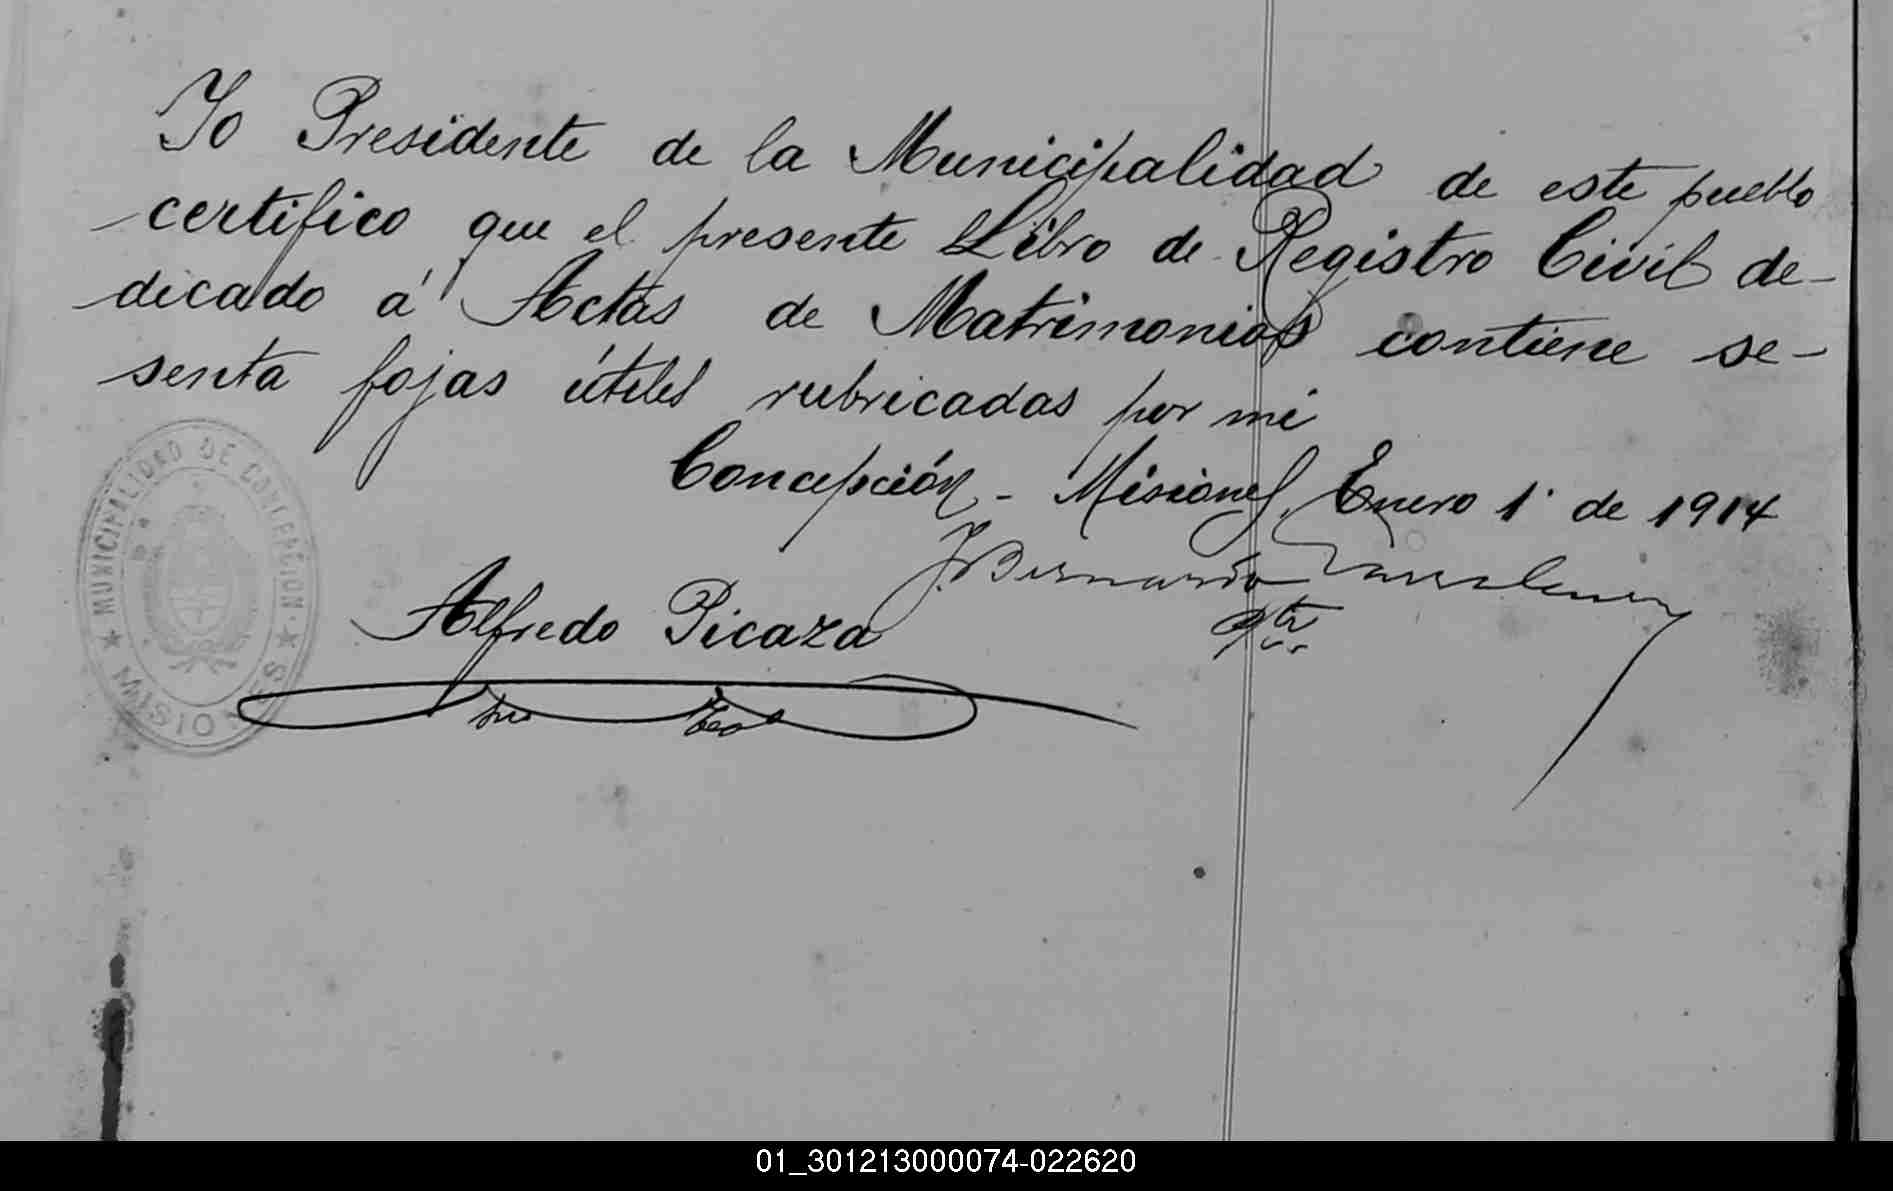 Yo Presidente de la Municipalidad de este pueblo
certifico que el presente Libro de Registro Civil de-
dicado á Actas de Matrimonios contiene se-
senta fojas útiles rubricadas por mi
Concepción - Misiones, Enero 1º de 1914
J. Bernardo
Alfredo Picaza
Srio Teso
MUNICIPALIDAD DE CONCEPCION
MISIONES
01_301213000074-022620